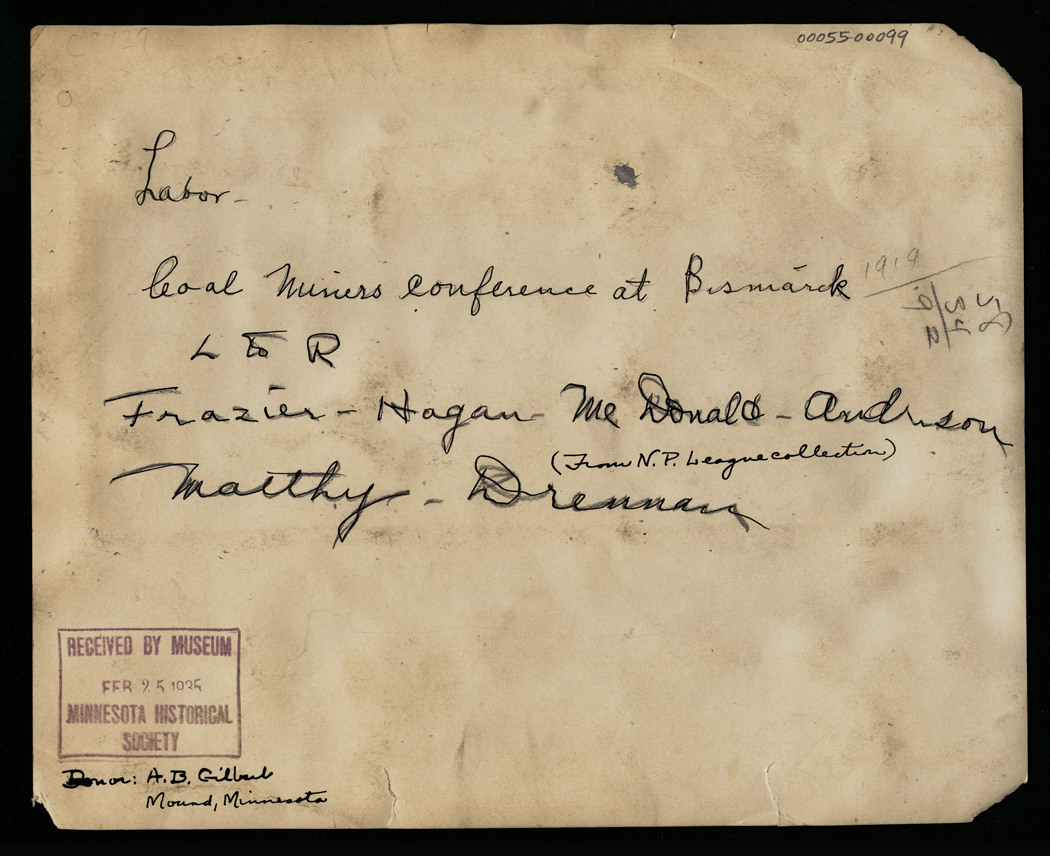 00055-00099
Labor-
Coal Miners Conference at Bismarck 1919
L to R
Frazier - Hagan - McDonald - Anderson
(From N.P. League collection)
Matthy - Drennan
RECEIVED BY MUSEUM
FEB 25 1935
MINNESOTA HISTORICAL
SOCIETY
Donor: A.B. Gilbert
Mound, Minnesota